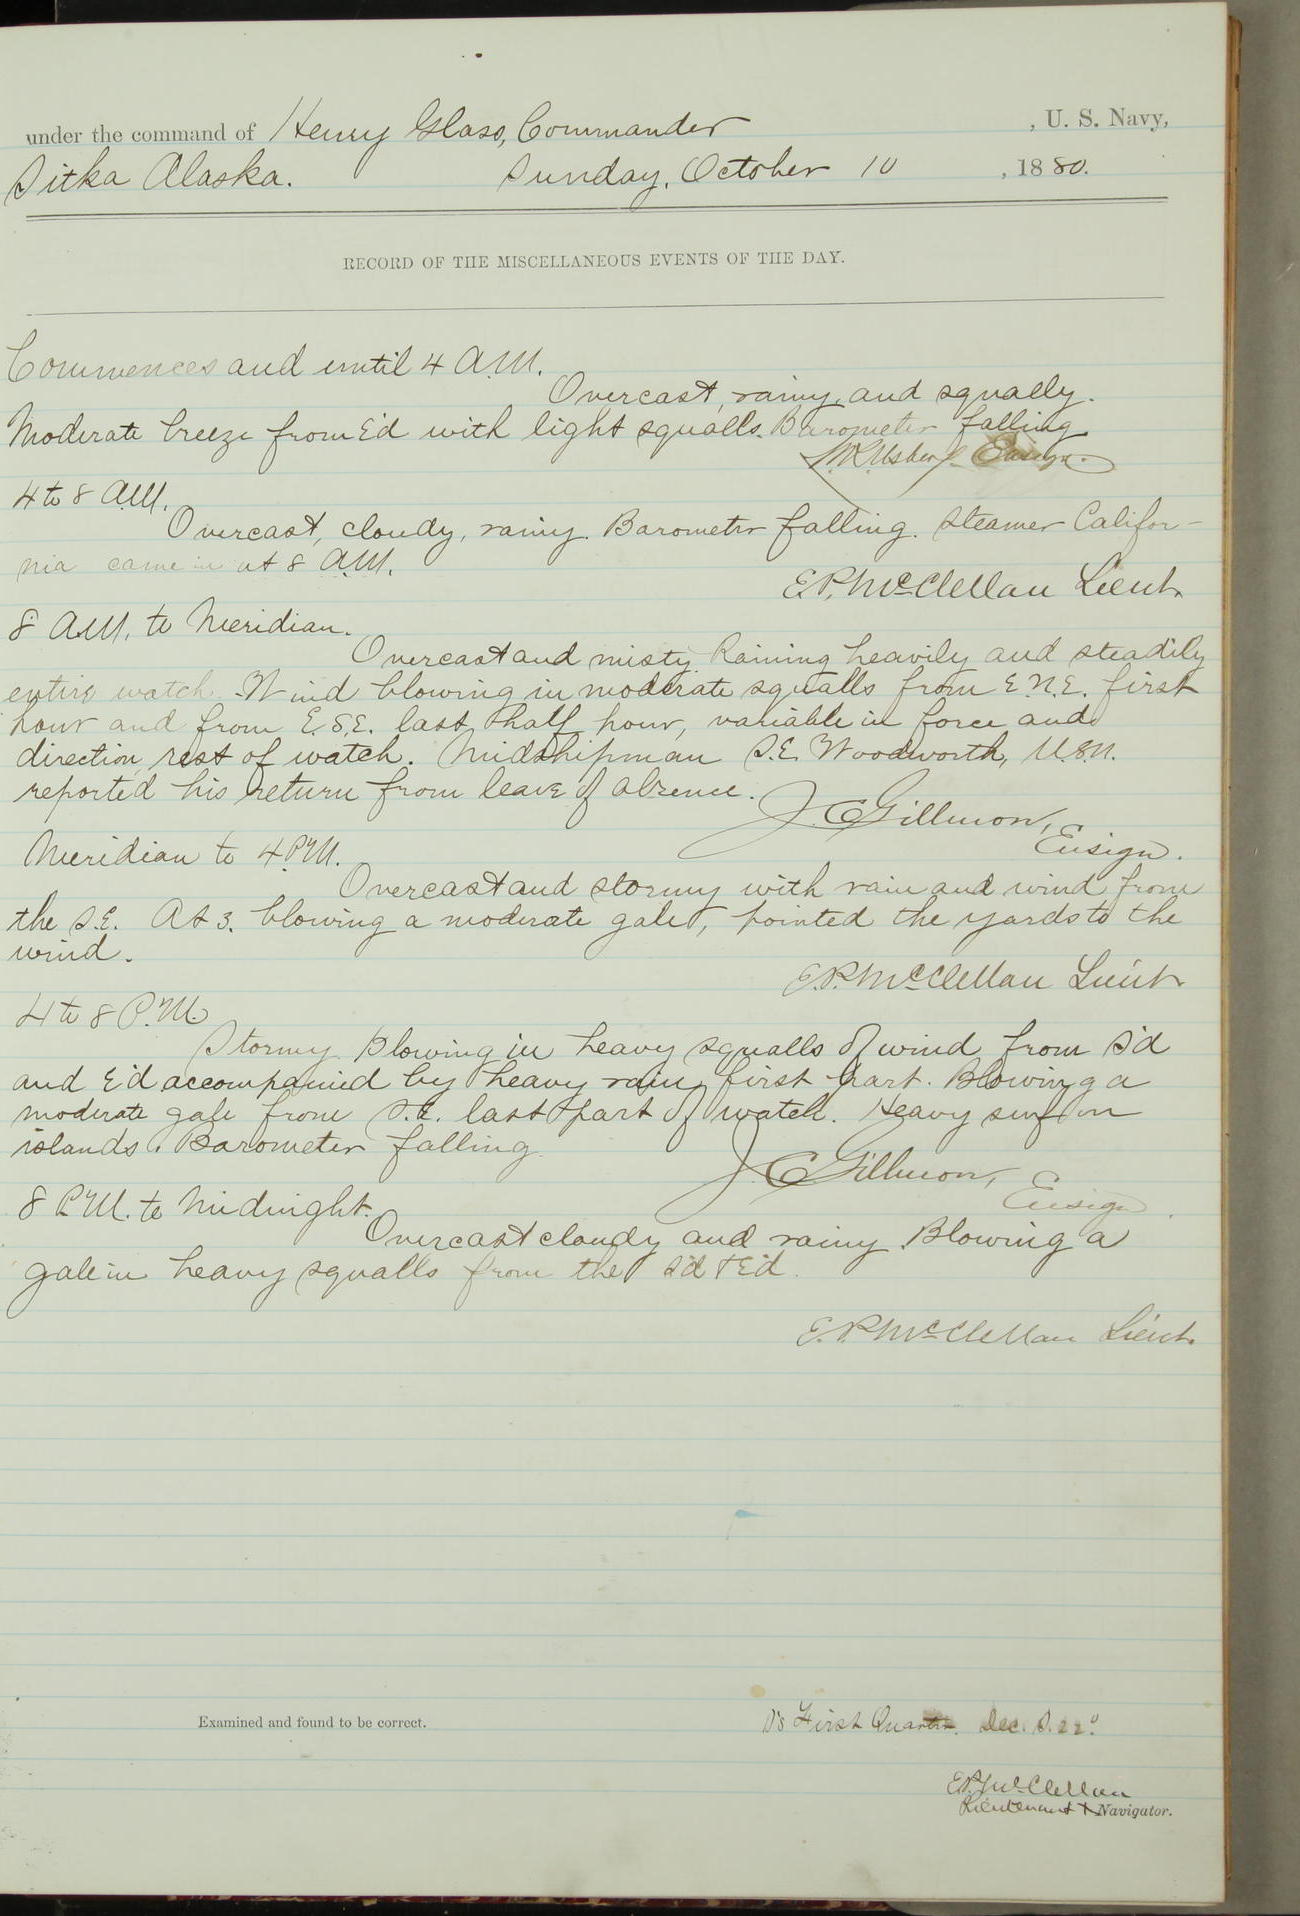 under the command of Henry Glass, Commander , U. S. Navy,
Sitka Alaska. Sunday, October 10 , 1880.
RECORD OF THE MISCELLANEOUS EVENTS OF THE DAY.
Commences and until 4 A.M.
Overcast, rainy, and squally.
Moderate breeze from E'd with light squalls. Barometer falling
Ensign.
4 to 8 A.M.
Overcast, cloudy, rainy. Barometer falling. Steamer Califor-
nia came in at 8 A.M.
E.P. McClellan Lieut.
8 A.M. to Meridian.
Overcast and misty Raining heavily and steadily
entire watch. Wind blowing in moderate squalls from E.N.E. first
hour and from E.S.E. last half hour, variable in force and
direction rest of watch. Midshipman S.E. Woodworth, U.S.N.
reported his return from leave of absence.
J.C. Gillmore,
Ensign.
Meridian to 4 P.M.
Overcast and stormy with rain and wind from
the S.E. At 3. blowing a moderate gale, pointed the yards to the
wind.
E.P. McClellan Lieut.
4 to 8 P.M.
Stormy. Blowing in heavy squalls of wind from S'd
and E'd accompanied by heavy rain, first part. Blowing a
moderate gale from S.E. last part of watch. Heavy surf on
islands. Barometer falling.
J.C. Gillmore,
Ensign.
8 P.M. to Midnight.
Overcast cloudy and rainy. Blowing a
gale in heavy squalls from the S'd & E'd.
E.P. McClellan Lieut.
Examined and found to be correct. D's First Quarter. Dec. S. 22°
E.P. McClellan
Lieutenant & Navigator.